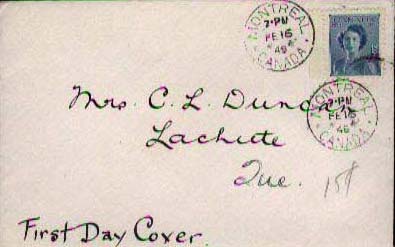 MONTREAL
7-PM
FE 16
48
CANADA
CANADA
MONTREAL
7-PM
FE 16
48
CANADA
Mrs. C. L. Duncan
Lachute
Que.
15¢
First Day Cover.